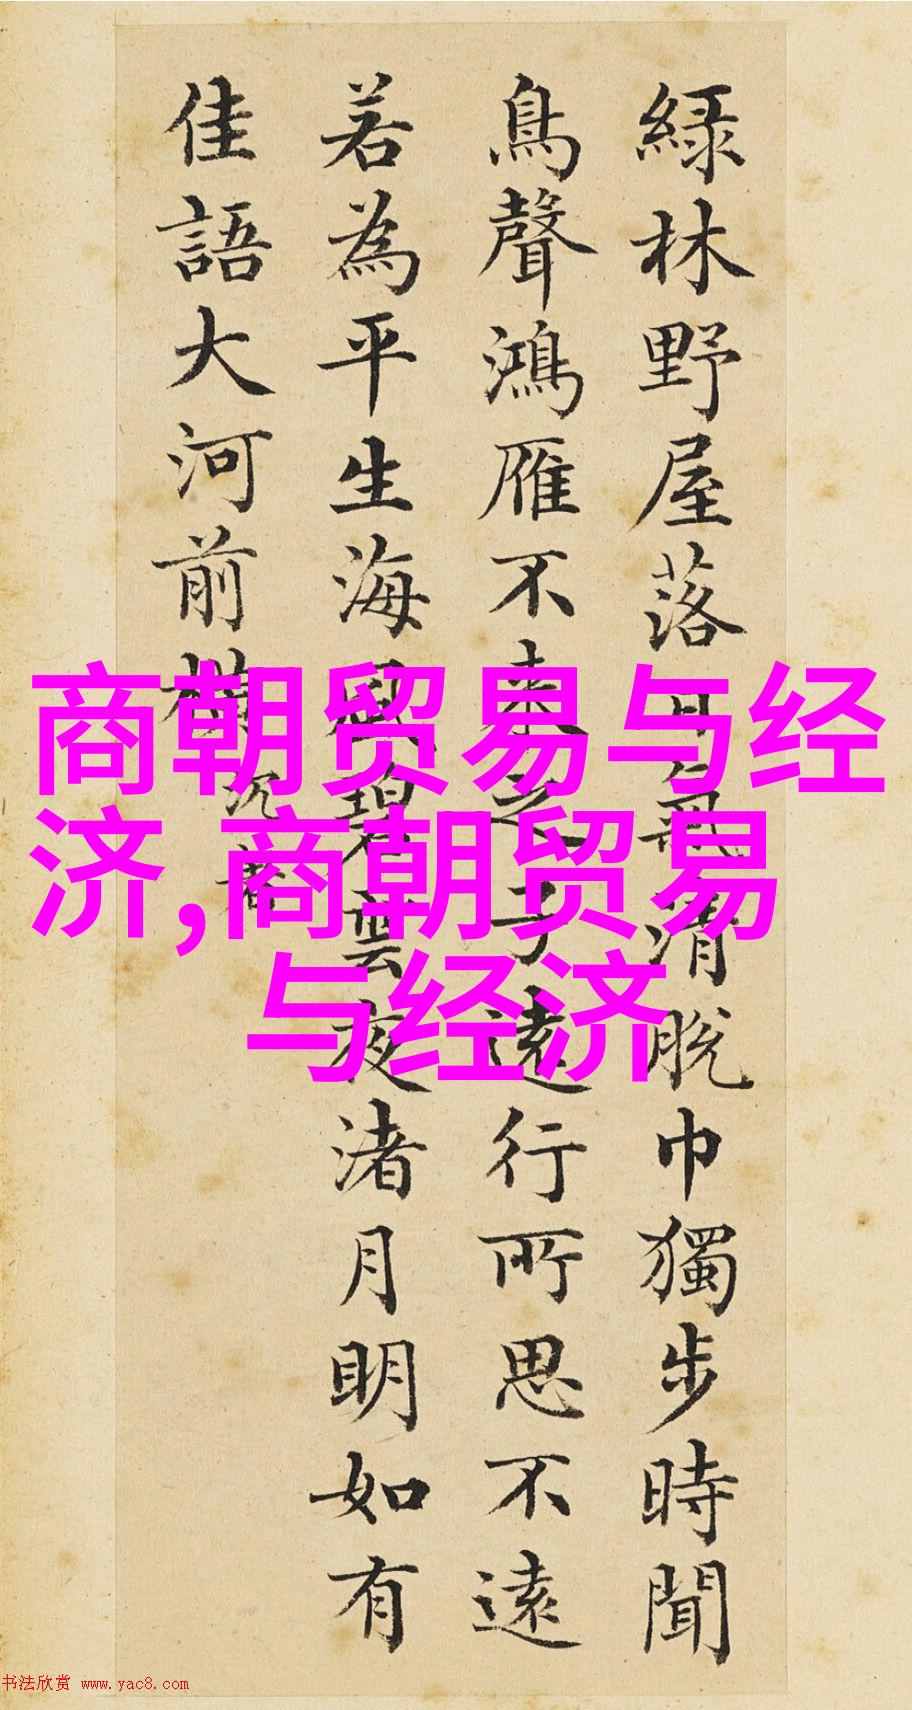 綠林野屋落日氣清脫巾獨步時聞
鳥聲鴻雁不來之子遠行所思不遠
若為平生海風碧雲夜渚月明如有
佳語大河前橫
沉著
商朝贸易与经
济,商朝贸易
与经济
书法欣赏 www.yac8.com